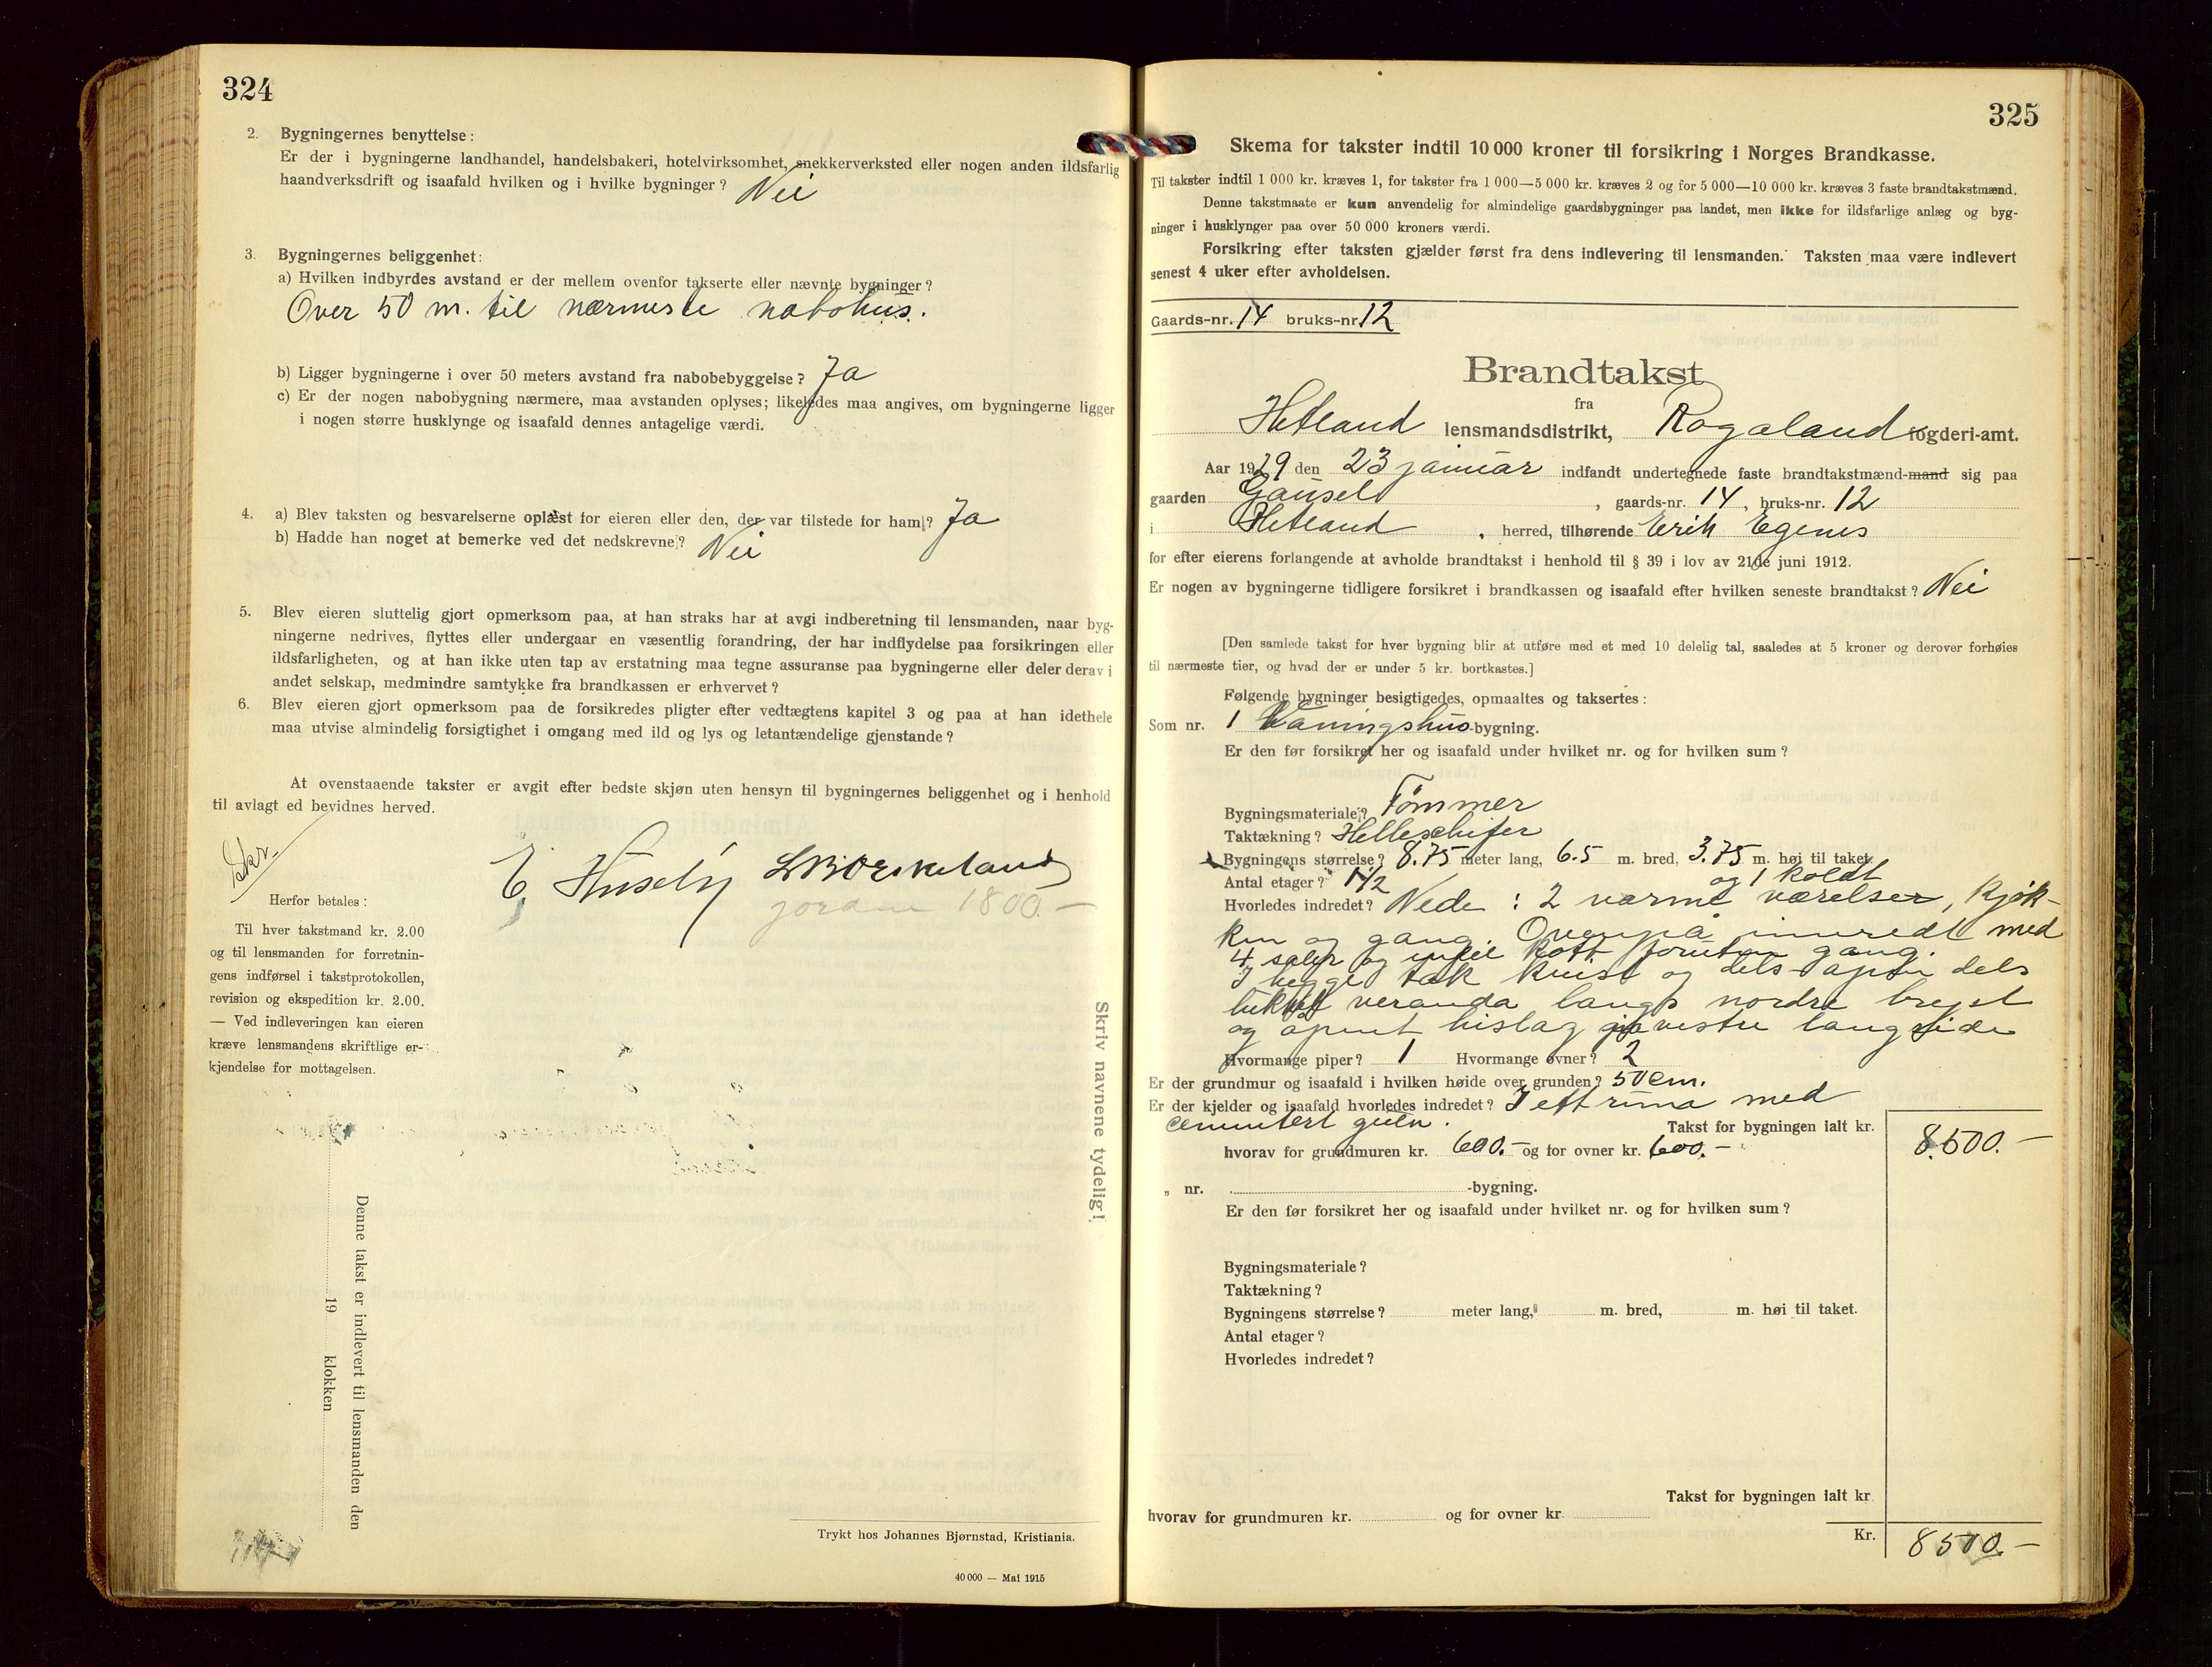 324
2. Bygningernes benyttelse:
Er der i bygningerne landhandel, handelsbakeri, hotelvirksomhet, snekkerverksted eller nogen anden ildsfarlig
haandverksdrift og isaafald hvilken og i hvilke bygninger? Nei
3. Bygningernes beliggenhet:
a) Hvilken indbyrdes avstand er der mellem ovenfor takserte eller nævnte bygninger?
Over 50 m. til nærmeste nabohus.
b) Ligger bygningerne i over 50 meters avstand fra nabobebyggelse? Ja
c) Er der nogen nabobygning nærmere, maa avstanden oplyses; likeledes maa angives, om bygningerne ligger
i nogen større husklynge og isaafald dennes antagelige værdi.
4. a) Blev taksten og besvarelserne oplæst for eieren eller den, der var tilstede for ham? Ja
b) Hadde han noget at bemerke ved det nedskrevne? Nei
5. Blev eieren sluttelig gjort opmerksom paa, at han straks har at avgi indberetning til lensmanden, naar byg-
ningerne nedrives, flyttes eller undergaar en væsentlig forandring, der har indflydelse paa forsikringen eller
ildsfarligheten, og at han ikke uten tap av erstatning maa tegne assuranse paa bygningerne eller deler derav i
andet selskap, medmindre samtykke fra brandkassen er erhvervet?
6. Blev eieren gjort opmerksom paa de forsikredes pligter efter vedtægtens kapitel 3 og paa at han idethele
maa utvise almindelig forsigtighet i omgang med ild og lys og letantændelige gjenstande?
At ovenstaaende takster er avgit efter bedste skjøn uten hensyn til bygningernes beliggenhet og i henhold
til avlagt ed bevidnes herved.
E. Huseby L Birkeland
jordn 1800.-
Herfor betales:
Til hver takstmand kr. 2.00
og til lensmanden for forretnin-
gens indførsel i takstprotokollen,
revision og ekspedition kr. 2.00.
— Ved indleveringen kan eieren
kræve lensmandens skriftlige er-
kjendelse for mottagelsen.
Skriv navnene tydelig!
Denne takst er indlevert til lensmanden den
19 klokken
Trykt hos Johannes Bjørnstad, Kristiania.
40 000 — Mai 1915
325
Skema for takster indtil 10 000 kroner til forsikring i Norges Brandkasse.
Til takster indtil 1 000 kr. kræves 1, for takster fra 1 000—5 000 kr. kræves 2 og for 5 000—10 000 kr. kræves 3 faste brandtakstmænd.
Denne takstmaate er kun anvendelig for almindelige gaardsbygninger paa landet, men ikke for ildsfarlige anlæg og byg-
ninger i husklynger paa over 50 000 kroners værdi.
Forsikring efter taksten gjælder først fra dens indlevering til lensmanden. Taksten maa være indlevert
senest 4 uker efter avholdelsen.
Gaards-nr. 14 bruks-nr. 12
Brandtakst
fra
Hetland lensmandsdistrikt, Rogaland fogderi-amt.
Aar 1929 den 23 januar indfandt undertegnede faste brandtakstmænd-mand sig paa
gaarden Gausel, gaards-nr. 14, bruks-nr. 12
i Hetland, herred, tilhørende Erik Egenes
for efter eierens forlangende at avholde brandtakst i henhold til § 39 i lov av 21de juni 1912.
Er nogen av bygningerne tidligere forsikret i brandkassen og isaafald efter hvilken seneste brandtakst? Nei
[Den samlede takst for hver bygning blir at utføre med et med 10 delelig tal, saaledes at 5 kroner og derover forhøies
til nærmeste tier, og hvad der er under 5 kr. bortkastes.]
Følgende bygninger besigtigedes, opmaaltes og taksertes:
Som nr. 1 Vaaningshus-bygning.
Er den før forsikret her og isaafald under hvilket nr. og for hvilken sum?
Bygningsmateriale? Tömmer
Taktækning? Helleschifer
Bygningens størrelse? 8.75 meter lang, 6.5 m. bred, 3.75 m. høi til taket.
Antal etager? 1 1/2 og 1 koldt
Hvorledes indredet? Nede: 2 varme værelser, kjøk-
ken og gang. Ovenpå innredt med
4 saler og kott foruten gang.
I begge tak kvist og dels åpen dels
lukket veranda langs nordre bryst
og åpent bislag vestre langside
Hvormange piper? 1 Hvormange ovner? 2
Er der grundmur og isaafald i hvilken høide over grunden? 50 cm.
Er der kjelder og isaafald hvorledes indredet? I ett rum med
cementert gulv. Takst for bygningen ialt kr. 8.500.-
hvorav for grundmuren kr. 600.- og for ovner kr. 600.-
„ nr. -bygning.
Er den før forsikret her og isaafald under hvilket nr. og for hvilken sum?
Bygningsmateriale?
Taktækning?
Bygningens størrelse? meter lang, m. bred, m. høi til taket.
Antal etager?
Hvorledes indredet?
Takst for bygningen ialt kr.
hvorav for grundmuren kr. og for ovner kr.
Kr. 8500.-